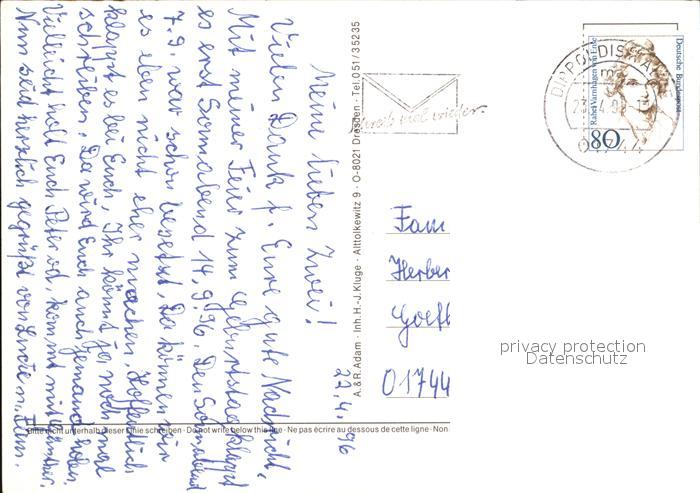 22.4.96
Meine lieben Zwei!
Vielen Dank f. Eure gute Nachricht,
Mit meiner Feier zum Geburtstag klappt
es erst Sonnabend 14.9.96. Den Sonnabend
7.9. war schon besetzt. Da können wir
es eben nicht eher machen. Hoffentlich
klappt es bei Euch, Ihr könnt ja noch mal
schreiben. Da wird Euch auch jemand holen.
Vielleicht holt Euch Peter od. kommt mit
Nun seid herzlich gegrüßt von Lucie m. Fam.
Bitte nicht unterhalb dieser Linie schreiben · Do not write below this line · Ne pas écrire au dessous de cette ligne · Non
A. & R. Adam · Inh. H.-J. Kluge · Alttolkewitz 9 · O-8021 Dresden · Tel. 051/35235
Schreib mal wieder.
DIPPOLDISWALDE
01744
Deutsche Bundespost
Rahel Varnhagen von Ense
80
Fam
Herber
Goeß
01744
privacy protection
Datenschutz